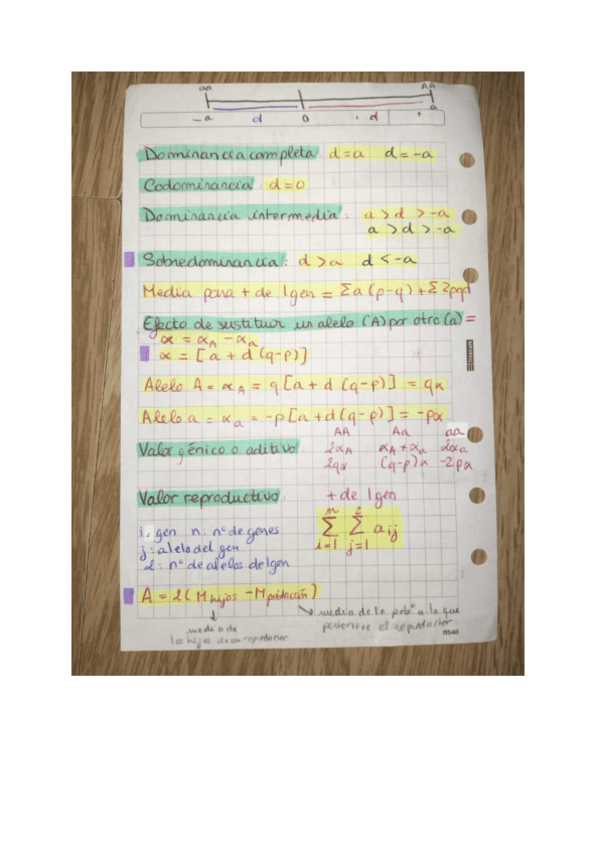 aa AA
-a d 0 d a
Dominancia completa: d=a d=-a
Codominancia: d=0
Dominancia intermedia: a>d>-a
a>d>-a
Sobredominancia: d>a d<-a
Media para + de 1 gen = Σa(p-q)+Σ2pqd
Efecto de sustituir un alelo (A) por otro (a) =
α = αA - αa
α = [a+d(q-p)]
Alelo A = αA = q[a+d(q-p)] = qα
Alelo a = αa = -p[a+d(q-p)] = -pα
AA Aa aa
Valor génico o aditivo 2αA αA+αa 2αa
2qα (q-p)α -2pα
Valor reproductivo + de 1 gen
i: gen n: nº de genes
j: alelo del gen
2: nº de alelos del gen
n 2
Σ Σ aij
i=1 j=1
A = 2(M hijos - M población)
media de la pobº a la que
pertenece el reproductor
media de
los hijos de un reproductor
RS40